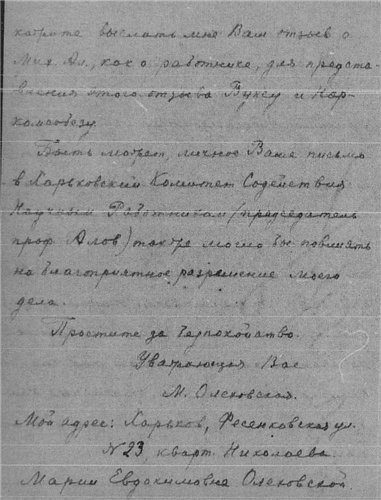 хотите выслать мне Ваш отзыв о
Мих Ал., как о работнике, для представ-
вления этого отзыва Вуксу и Нар-
комсобезу.
Быть может, личное Ваше письмо
в Харьковский Комитет Содействия
Научным Работникам (председатель
проф Алов) также могло бы повлиять
на благоприятное разрешение моего
дела.
Простите за беспокойство.
Уважающая Вас
М. Оленовская.
Мой адрес: Харьков, Фесенковская ул.
№23, кварт. Николаева
Марии Евдокимовне Оленовской.